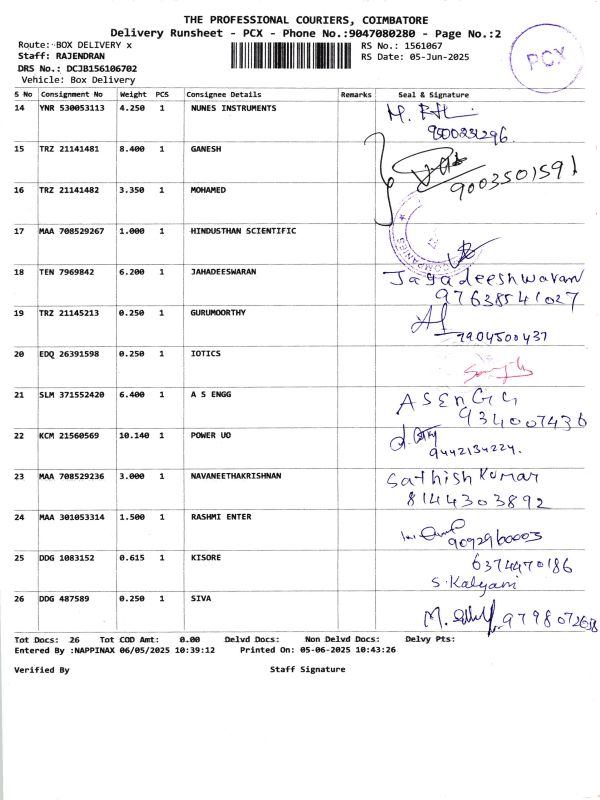 THE PROFESSIONAL COURIERS, COIMBATORE
Delivery Runsheet - PCX - Phone No.:9047080280 - Page No.:2
Route: BOX DELIVERY x
RS No.: 1561067
Staff: RAJENDRAN
RS Date: 05-Jun-2025
DRS No.: DCJB156106702
Vehicle: Box Delivery
PCX
S No Consignment No Weight PCS Consignee Details Remarks Seal & Signature
14 YNR 530053113 4.250 1 NUNES INSTRUMENTS
15 TRZ 21141481 8.400 1 GANESH
9003501591
16 TRZ 21141482 3.350 1 MOHAMED
17 MAA 708529267 1.000 1 HINDUSTHAN SCIENTIFIC
18 TEN 7969842 6.200 1 JAHADEESWARAN Jagadeeshwaran
97638541027
19 TRZ 21145213 0.250 1 GURUMOORTHY
7904500437
20 EDQ 26391598 0.250 1 IOTICS
21 SLM 371552420 6.400 1 A S ENGG A S EnGG
934007436
22 KCM 21560569 10.140 1 POWER UO
9442134224.
23 MAA 708529236 3.000 1 NAVANEETHAKRISHNAN Sathish Kumar
8144303892
24 MAA 301053314 1.500 1 RASHMI ENTER
9092960003
25 DDG 1083152 0.615 1 KISORE 6374470186
S. Kalyani
26 DDG 487589 0.250 1 SIVA
Tot Docs: 26 Tot COD Amt: 0.00 Delvd Docs: Non Delvd Docs: Delvy Pts:
Entered By :NAPPINAX 06/05/2025 10:39:12 Printed On: 05-06-2025 10:43:26
Verified By Staff Signature